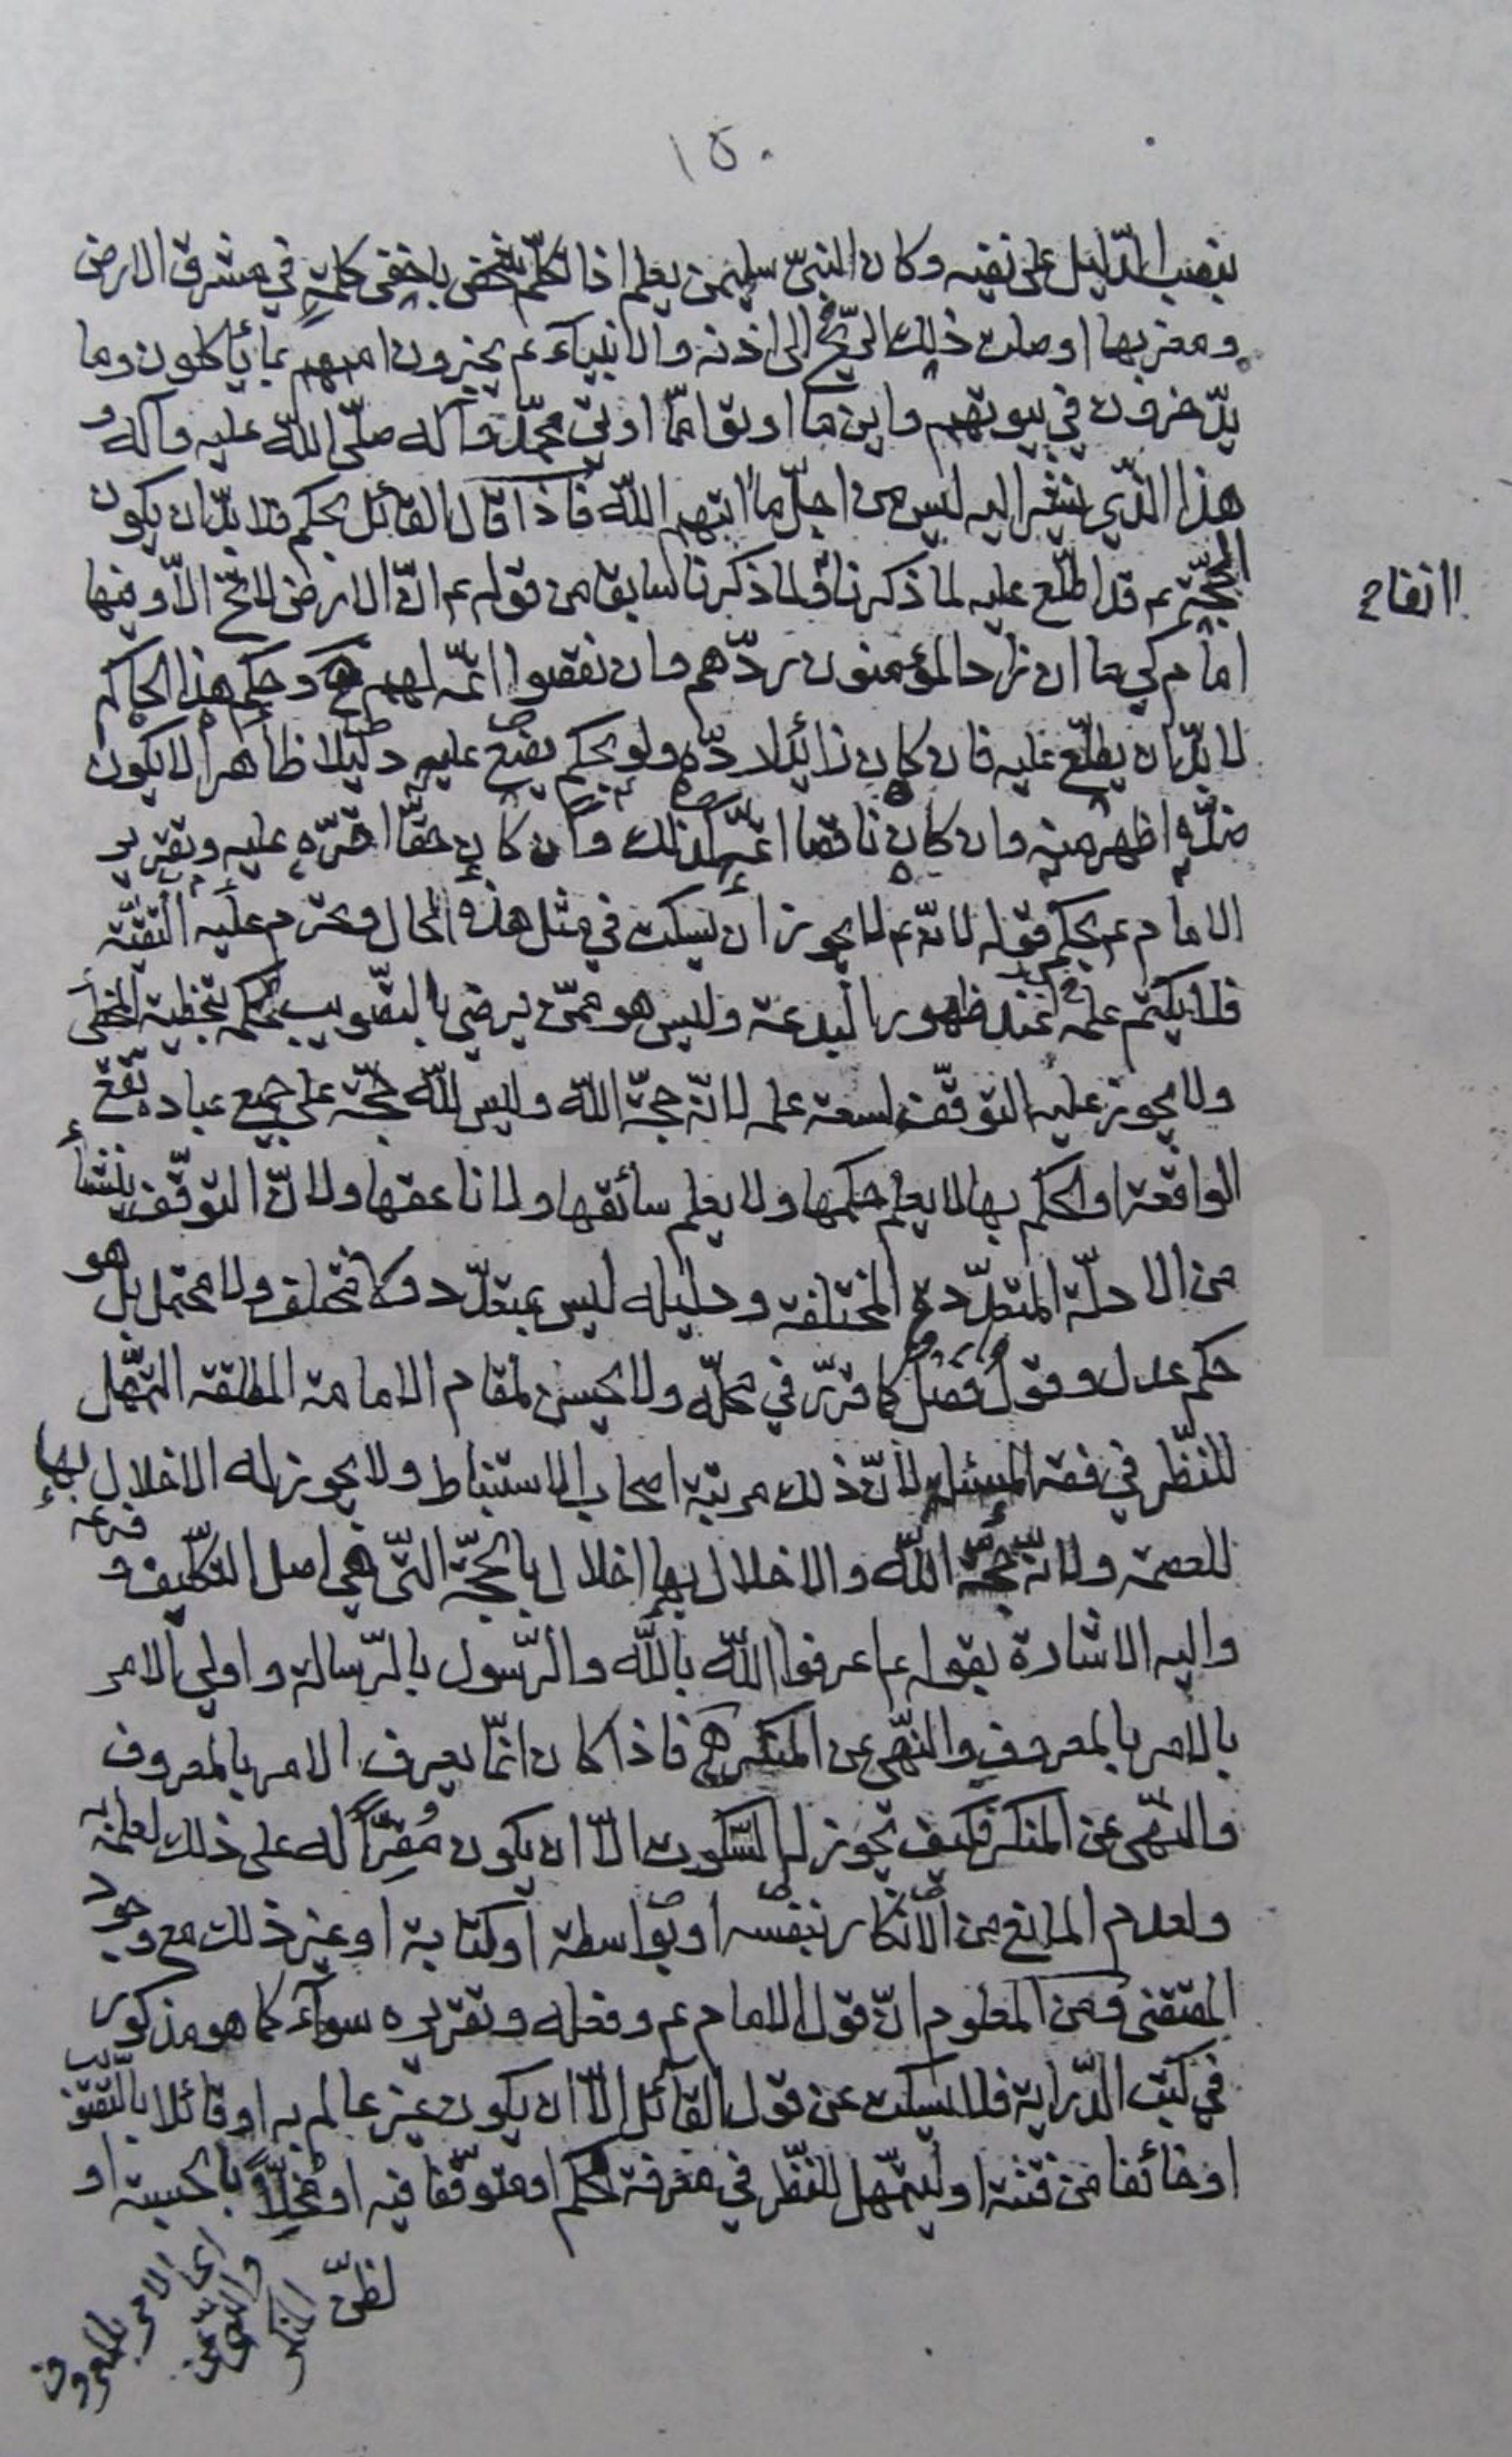 ١٥٠
بنصب الدّليل على نفيه وكان النبيّ سليمن يعلم اذا تكلّم شخص باخفى كلمةٍ في مشرق الارض
ومغربها اوصلت ذلك الرّيح الى اذنه والانبياء عم يخبرون اممهم بما يأكلون وما
يدّخرون في بيوتهم واين ما اوتوا ممّا اوتي محمّد وآله صلّى الله عليه وآله و
هذا الذي نشير اليه ليس من اجلّ ما اتيهم الله فاذا قال القائل بحكم فلا بدّ ان يكون
الحجّة عم قد اطّلع عليه لما ذكرنا ولما ذكرنا سابقا من قوله عم انّ الارض لا تخ الّا وفيها
امام كيما ان زاد المؤمنون ردّهم وان نقصوا اتمّه لهم هى وحكم هذا الحاكم
لا بدّ ان يطّلع عليه فان كان زائدا ردّه ولو بحكم يضع عليه دليلا ظاهرا لا يكون
ضدّه اظهر منه وان كان ناقصا اتمّه كذلك وان كان حقّا اقرّه عليه وتقرير
الامام عم بحكم قوله لانّه عم لا يجوز ان يسكت في مثل هذه الحال ويحرم عليه التقيّة
فلا يكتم علمه عند ظهور البدعة وليس هو ممّن يرضى بالتصويب لحكمه بتخطية المخطى
ولا يجوز عليه التوقّف لسعة علمه لانّه حجّة الله وليس لله حجّة على جميع عباده تقع
الواقعة او الحكم بها لا يعلم حكمها ولا يعلم سائقها ولا ناعقها ولانّ التوقّف ينشأ
من الادلّة المتعدّدة المختلفة ودليله ليس بمتعدّد ولا مختلف ولا محتمل بل هو
حكم عدل وقول فصل كما قرّر في محلّه ولا يحسن لمقام الامامة المطلقة التمهّل
للنظر في فقه المسئلة لانّ ذلك مرتبة اصحاب الاستنباط ولا يجوز له الاخلال بها
للعصمة ولانّه حجّة الله والاخلال بها اخلال بالحجّة التي هي اصل التكليف و فرعه
واليه الاشارة بقوله عم اعرفوا الله بالله والرّسول بالرّسالة واولي الامر
بالامر بالمعروف والنّهي عن المنكر هى فاذا كان انّما يعرف الامر بالمعروف
والنّهي عن المنكر فكيف يجوز له السّكوت الّا ان يكون مُقِرّاً له على ذلك لعلمه به
ولعدم المانع من الانكار بنفسه او بواسطة او كتابة او غير ذلك مع وجود
المقتضى ومن المعلوم انّ قول الامام عم وفعله وتقريره سواء كما هو مذكور
في كتب الدّراية فلا يسكت عن قول القائل الّا ان يكون غير عالم به او قائلا بالتصويب
او خائفا من فتنة او ليتمهّل للنّظر في معرفة الحكم او متوقّفا فيه او مُخِلّاً بالحسبة او
لظنّ
اى الامر بالمعروف
والنّهى عن
المنكر